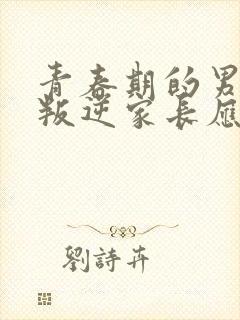 青春期的男
叛逆家長應
劉詩卉